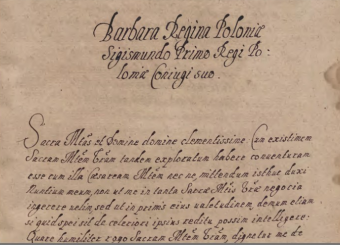 Barbara Regina Poloniæ
Sigismundo Primo Regi Po-
loniæ Coniugi suo.
Sacra Mtas et Domine domine clementissime. Cum existimem
Sacram Mtem Vram tandem exploratum habere conventuram
esse cum illa Cæsaream Mtem nec ne, mittendum isthuc duxi
Nuntium meum, non ut me in tanta Sacræ Mtis Vræ negocia
ingerere velim, sed ut in primis eius valetudinem, demum etiam
si quid spei sit de celeriori ipsius reditu possim intelligere:
Quare humiliter rogo Sacram Mtem Vram, dignetur me de